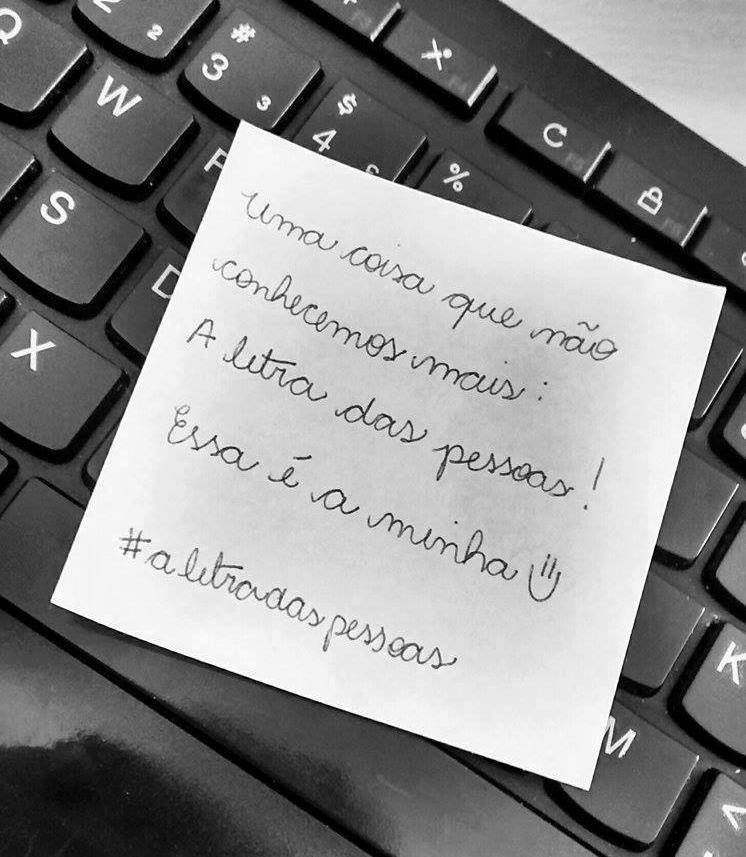 Uma coisa que não
conhecemos mais:
A letra das pessoas!
Essa é a minha
#aletradaspessoas
Q
2 2
W
# 3 3
$ 4
%
X
C
S
D
X
K
M